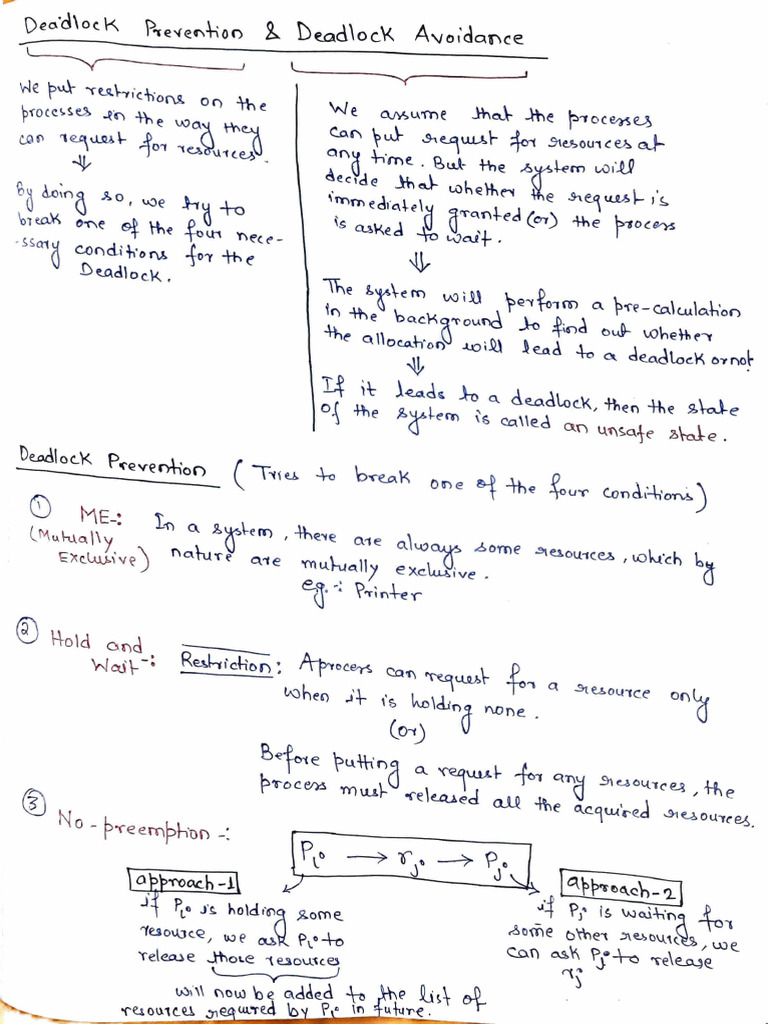 Deadlock Prevention & Deadlock Avoidance
We put restrictions on the
processes in the way they
can request for resources.
⇓
By doing so, we try to
break one of the four nece-
-ssary conditions for the
Deadlock.
We assume that the processes
can put request for resources at
any time. But the system will
decide that whether the request is
immediately granted (or) the process
is asked to wait.
⇓
The system will perform a pre-calculation
in the background to find out whether
the allocation will lead to a deadlock or not
⇓
If it leads to a deadlock, then the state
of the system is called an unsafe state.
Deadlock Prevention (Tries to break one of the four conditions)
① ME-: In a system, there are always some resources, which by
(Mutually nature are mutually exclusive.
Exclusive) e.g.-: Printer
② Hold and
Wait-: Restriction: A process can request for a resource only
when it is holding none.
(or)
Before putting a request for any resources, the
process must released all the acquired resources.
③ No-preemption-:
Pi → rj → Pj
approach-1
if Pi is holding some
resource, we ask Pi to
release those resources
will now be added to the list of
resources required by Pi in future.
approach-2
if Pj is waiting for
some other resources, we
can ask Pj to release
rj